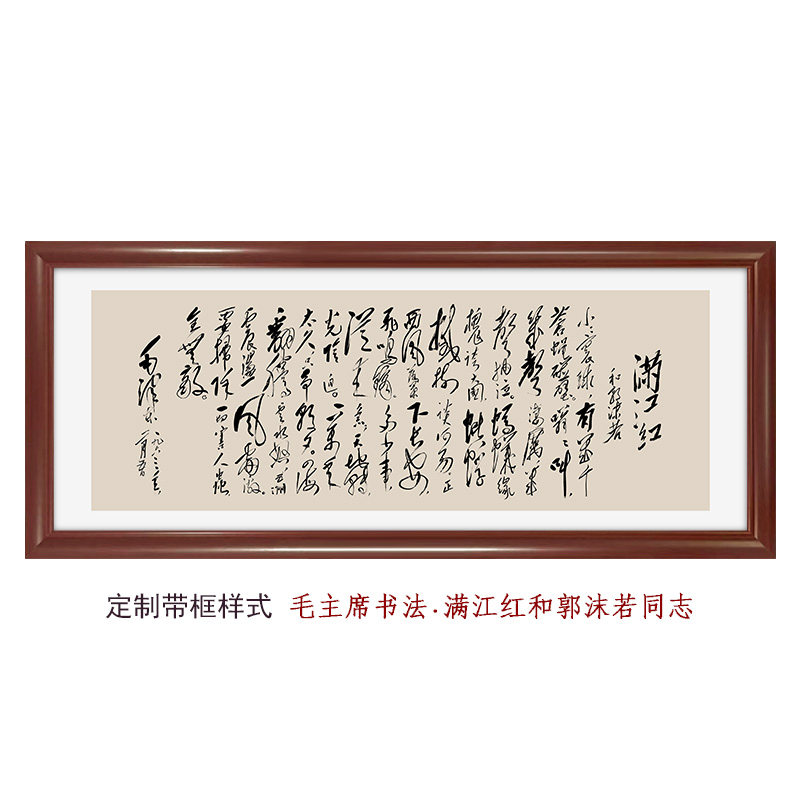 满江红
和郭沫若
小小寰球,有幾个
蒼蝇碰壁。嗡嗡叫,
几聲凄厲,几
聲抽泣。螞蟻缘
槐誇大國,蚍蜉
撼樹谈何易。正
西风落葉下长安,
飛鸣镝。多少事,
從来急。天地轉,
光陰迫。一萬年
太久,只争朝夕。四海
翻騰雲水怒,五洲
震盪风雷激。
要掃除一切害人虫
全無敵。
毛泽东
一九六三年
定制带框样式 毛主席书法·满江红和郭沫若同志